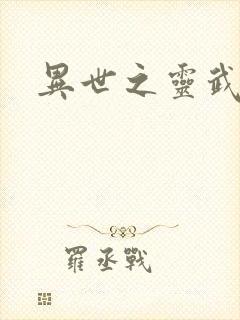 異世之靈武
羅丞戰